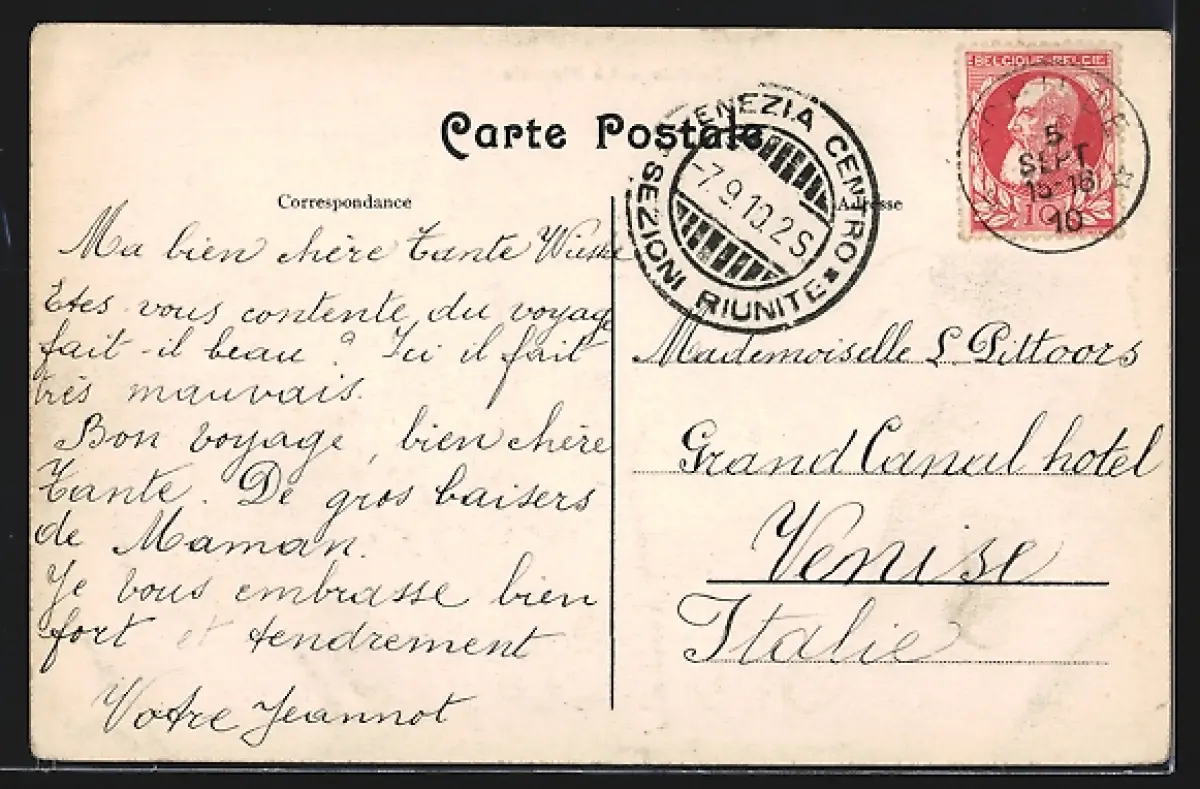 Carte Postale
Correspondance
Adresse
BELGIQUE-BELGIË
5
SEPT
15-16
10
VENEZIA CENTRO
-7.9.10.2S
SEZIONI RIUNITE
Ma bien chère tante
Etes-vous contente du voyage
fait-il beau? Ici il fait
très mauvais.
Bon voyage, bien chère
tante. De gros baisers
de Maman.
Je vous embrasse bien
fort et tendrement
Votre Jeannot
Mademoiselle L. Pittoors
Grand Canal hotel
Venise
Italie